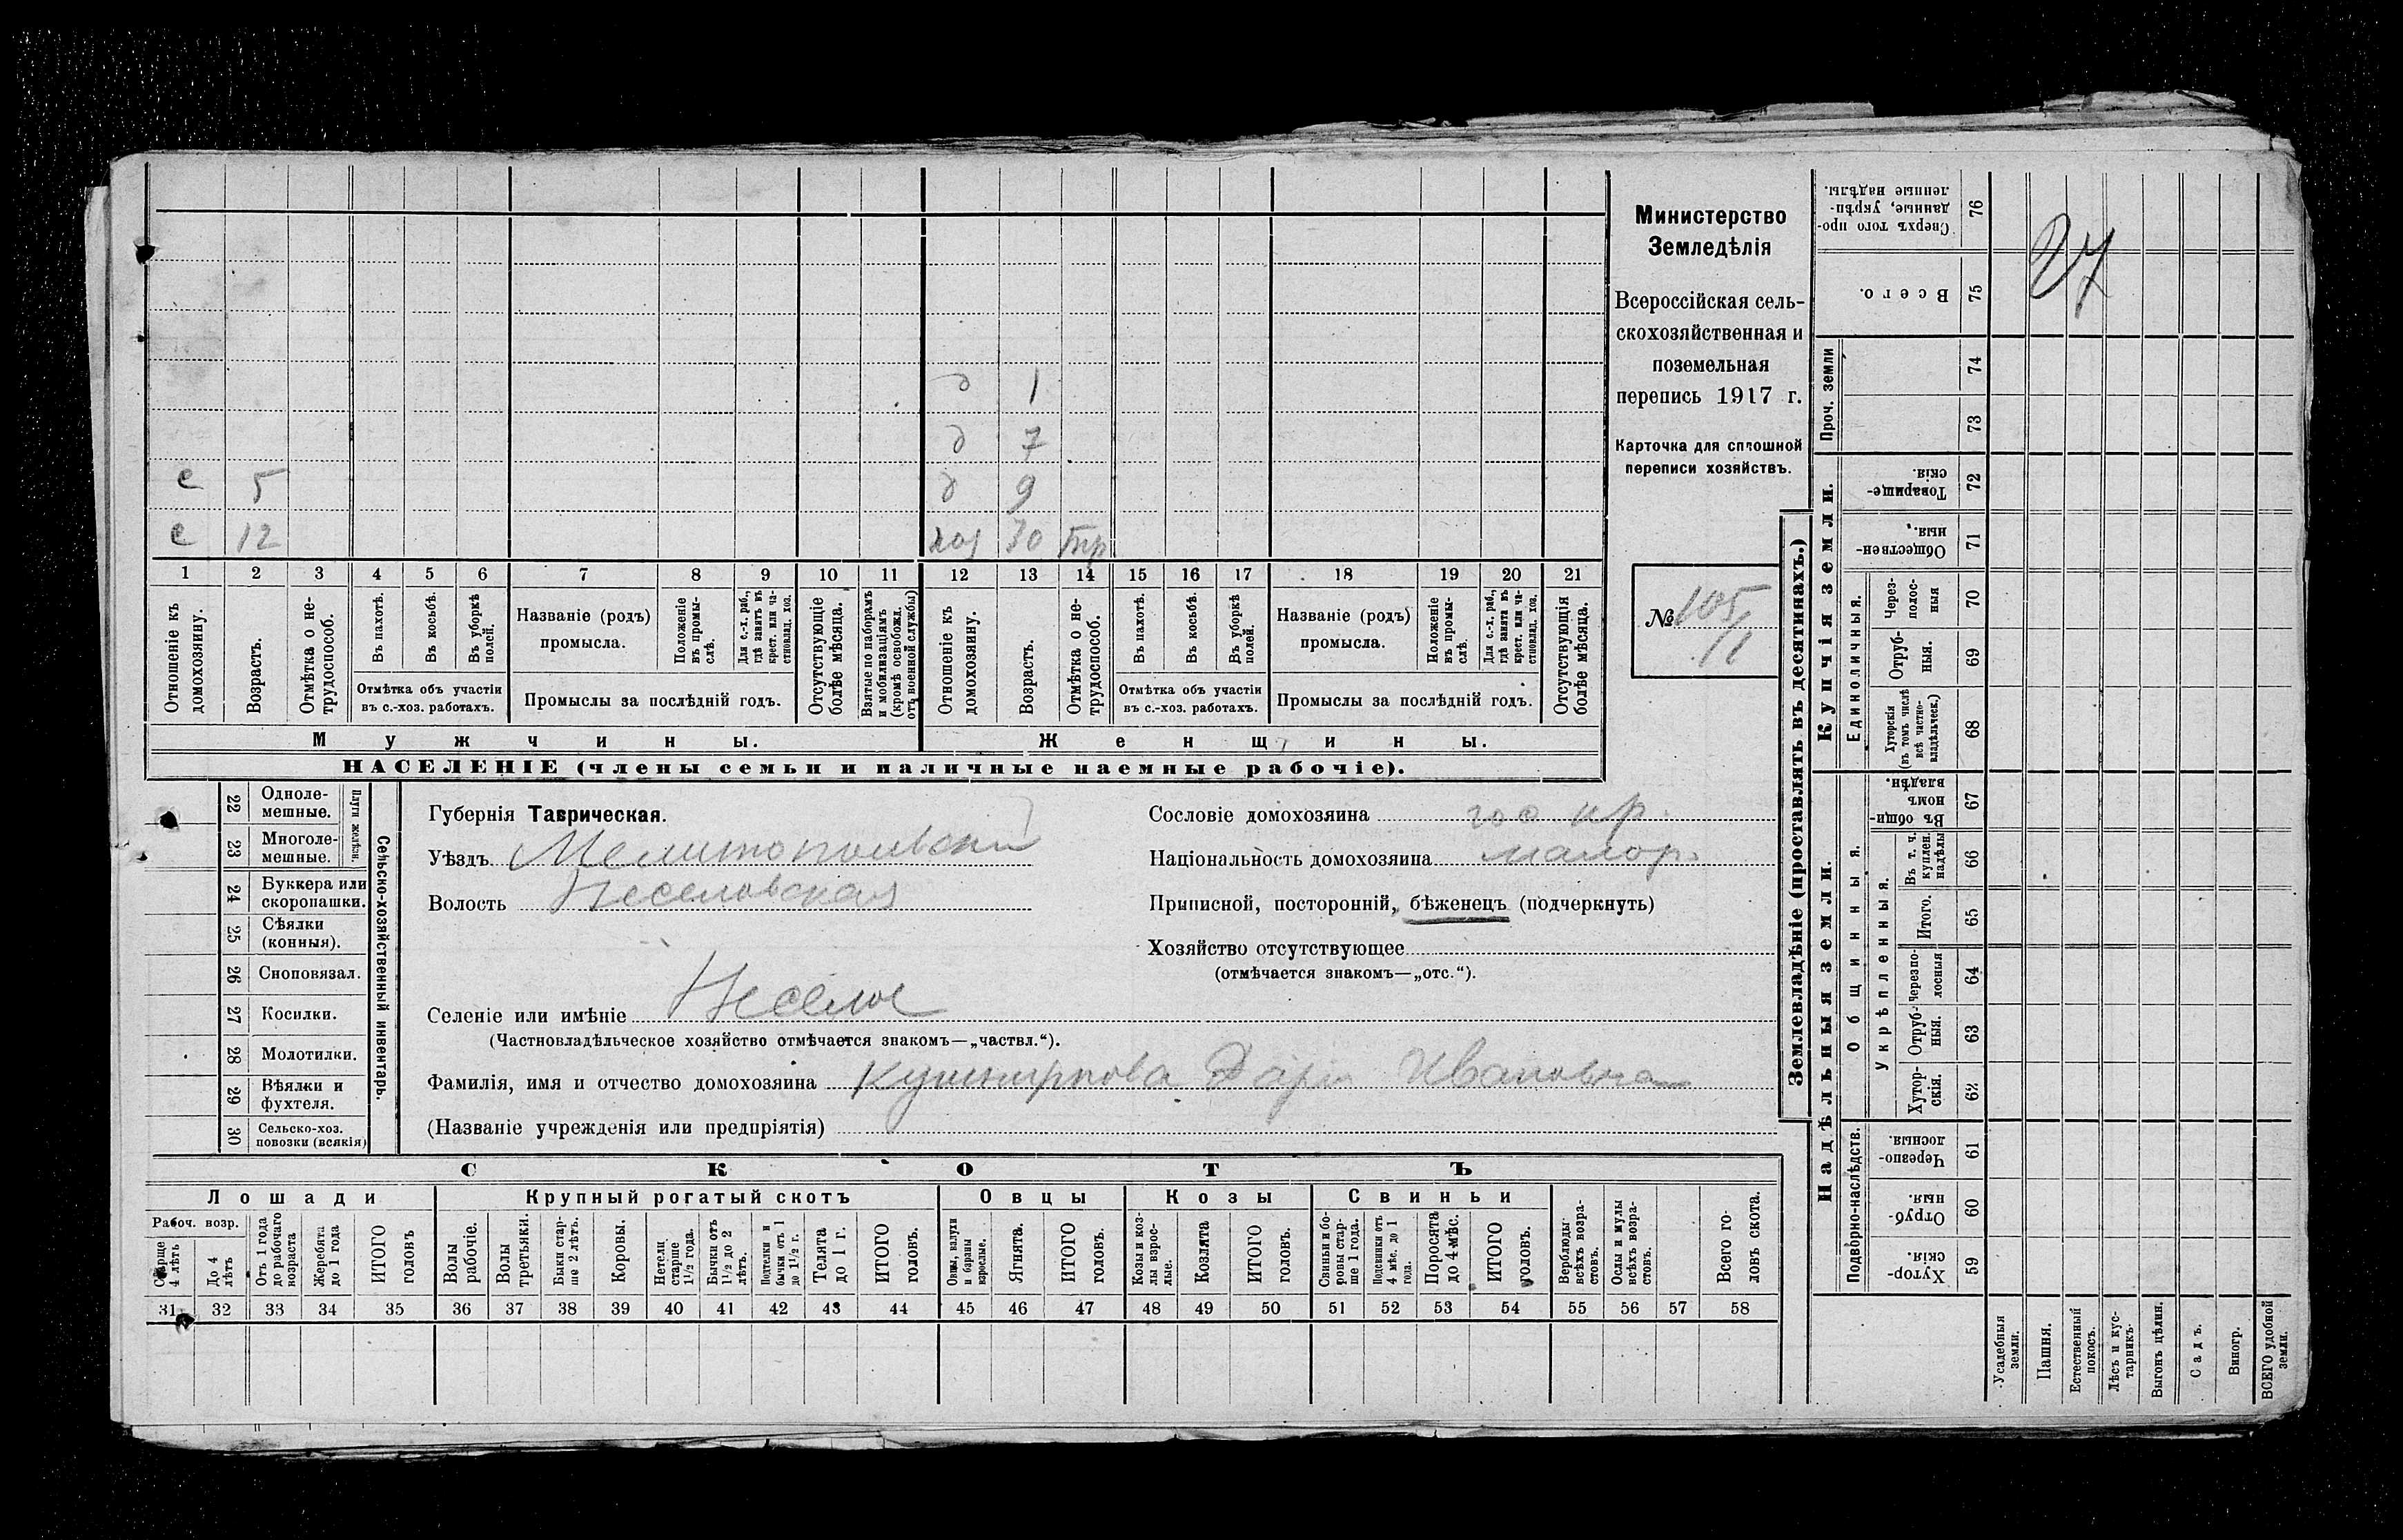 д 1
д 7
с 5 д 9
с 12 хоз 30 тр
1 2 3 4 5 6 7 8 9 10 11 12 13 14 15 16 17 18 19 20 21
Отношеніе къ домохозяину.
Возрастъ.
Отмѣтка о не-трудоспособ.
Въ пахотѣ.
Въ косьбѣ.
Въ уборкѣ полей.
Отмѣтка объ участіи
въ с.-хоз. работахъ.
Названіе (родъ)
промысла.
Положеніе въ промы-слѣ.
Для с.-х. раб., гдѣ занятъ въ крест. или ча-стновлад. хоз.
Промыслы за послѣдній годъ.
Отсутствующіе болѣе мѣсяца.
Взятые по наборамъ и мобилизаціямъ (кромѣ освобожд. отъ военной службы)
Отношеніе къ домохозяину.
Возрастъ.
Отмѣтка о не-трудоспособ.
Въ пахотѣ.
Въ косьбѣ.
Въ уборкѣ полей.
Отмѣтка объ участіи
въ с.-хоз. работахъ.
Названіе (родъ)
промысла.
Положеніе въ промы-слѣ.
Для с.-х. раб., гдѣ занята въ крест. или ча-стновлад. хоз.
Промыслы за послѣдній годъ.
Отсутствующія болѣе мѣсяца.
Мужчины. Женщины.
НАСЕЛЕНІЕ (члены семьи и наличные наемные рабочіе).
Министерство
Земледѣлія
Всероссійская сель-
скохозяйственная и
поземельная
перепись 1917 г.
Карточка для сплошной
переписи хозяйствъ.
№ 105
/1
22 Одноле-мешные.
23 Многоле-мешные.
Плуги желѣзн.
24 Буккера или скоропашки.
25 Сѣялки (конныя).
26 Сноповязал.
27 Косилки.
28 Молотилки.
29 Вѣялки и фухтеля.
30 Сельско-хоз. повозки (всякія)
Сельско-хозяйственный инвентарь.
Губернія Таврическая.
Уѣздъ Мелитопольскій
Волость Веселовская
Селеніе или имѣніе Веселое
(Частновладѣльческое хозяйство отмѣчается знакомъ—„частвл.“).
Фамилія, имя и отчество домохозяина Кушнирюва Дарія Ивановна
(Названіе учрежденія или предпріятія)
Сословіе домохозяина гос кр.
Національность домохозяина малор.
Приписной, посторонній, бѣженецъ (подчеркнуть)
Хозяйство отсутствующее
(отмѣчается знакомъ—„отс.“).
СКОТЪ
Лошади
Крупный рогатый скотъ
Овцы
Козы
Свиньи
Рабоч. возр.
Старше 4 лѣтъ
До 4 лѣтъ
Отъ 1 года до рабочаго возраста
Жеребята до 1 года
ИТОГО головъ
Волы рабочіе.
Волы третьяки.
Быки стар-ше 2 лѣтъ.
Коровы.
Нетели старше 1½ года.
Бычки отъ 1½ до 2 лѣтъ.
Подтелки и бычки отъ 1 до 1½ г.
Телята до 1 г.
ИТОГО головъ.
Овцы, валухи и бараны взрослые.
Ягнята.
ИТОГО головъ.
Козы и коз-лы взрос-лые.
Козлята
ИТОГО головъ.
Свиньи и бо-ровы стар-ше 1 года.
Подсвинки отъ 4 мѣс. до 1 года.
Поросята до 4 мѣс.
ИТОГО головъ.
Верблюды всѣхъ возра-стовъ.
Ослы и мулы всѣхъ возра-стовъ.
Всего го-ловъ скота.
31 32 33 34 35 36 37 38 39 40 41 42 43 44 45 46 47 48 49 50 51 52 53 54 55 56 57 58
Землевладѣніе (проставлять въ десятинахъ.)
Надѣльныя земли.
Купчія земли.
Проч. земли
Подворно-наслѣдств.
Общинныя.
Укрѣпленныя.
Единоличныя.
Сверхъ того про-данные, укрѣп-ленные надѣлы. 76
Всего. 75
74
73
Товарище-скія. 72
Обществен-ныя. 71
Через-полос-ныя 70
Отруб-ныя. 69
Хуторскія (въ томъ числѣ всѣ частно-владѣльческ.) 68
Въ общи-номъ владѣн. 67
Въ т. ч. куплен. надѣлы 66
Итого. 65
Черезпо-лосныя 64
Отруб-ныя. 63
Хутор-скія. 62
Черезпо-лосныя 61
Отруб-ныя. 60
Хутор-скія. 59
Усадебныя земли.
Пашня.
Естественный покосъ.
Лѣсъ и кус-тарникъ.
Выгонъ цѣлин.
Садъ.
Виногр.
ВСЕГО удобной земли.
27